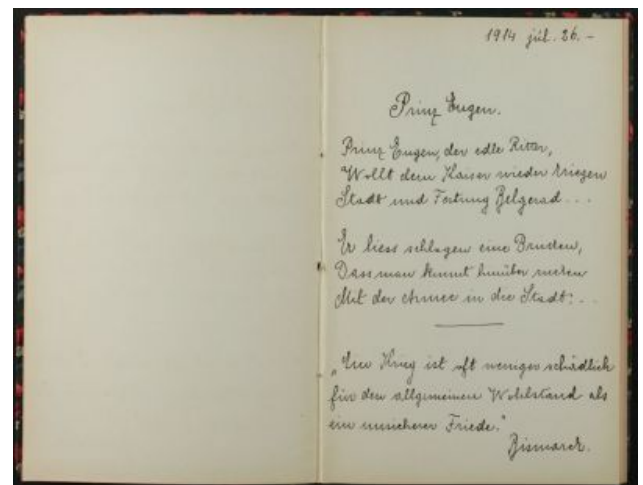 1914 júl. 26. -
Prinz Eugen.
Prinz Eugen, der edle Ritter,
Wollt dem Kaiser wieder kriegen
Stadt und Festung Belgerad...
Er liess schlagen eine Brucken,
Dass man kunnt hinüber rucken
Mit der Armee in die Stadt:..
„Ein Krieg ist oft weniger schädlich
für den allgemeinen Wohlstand als
ein unsicherer Friede."
Bismarck.